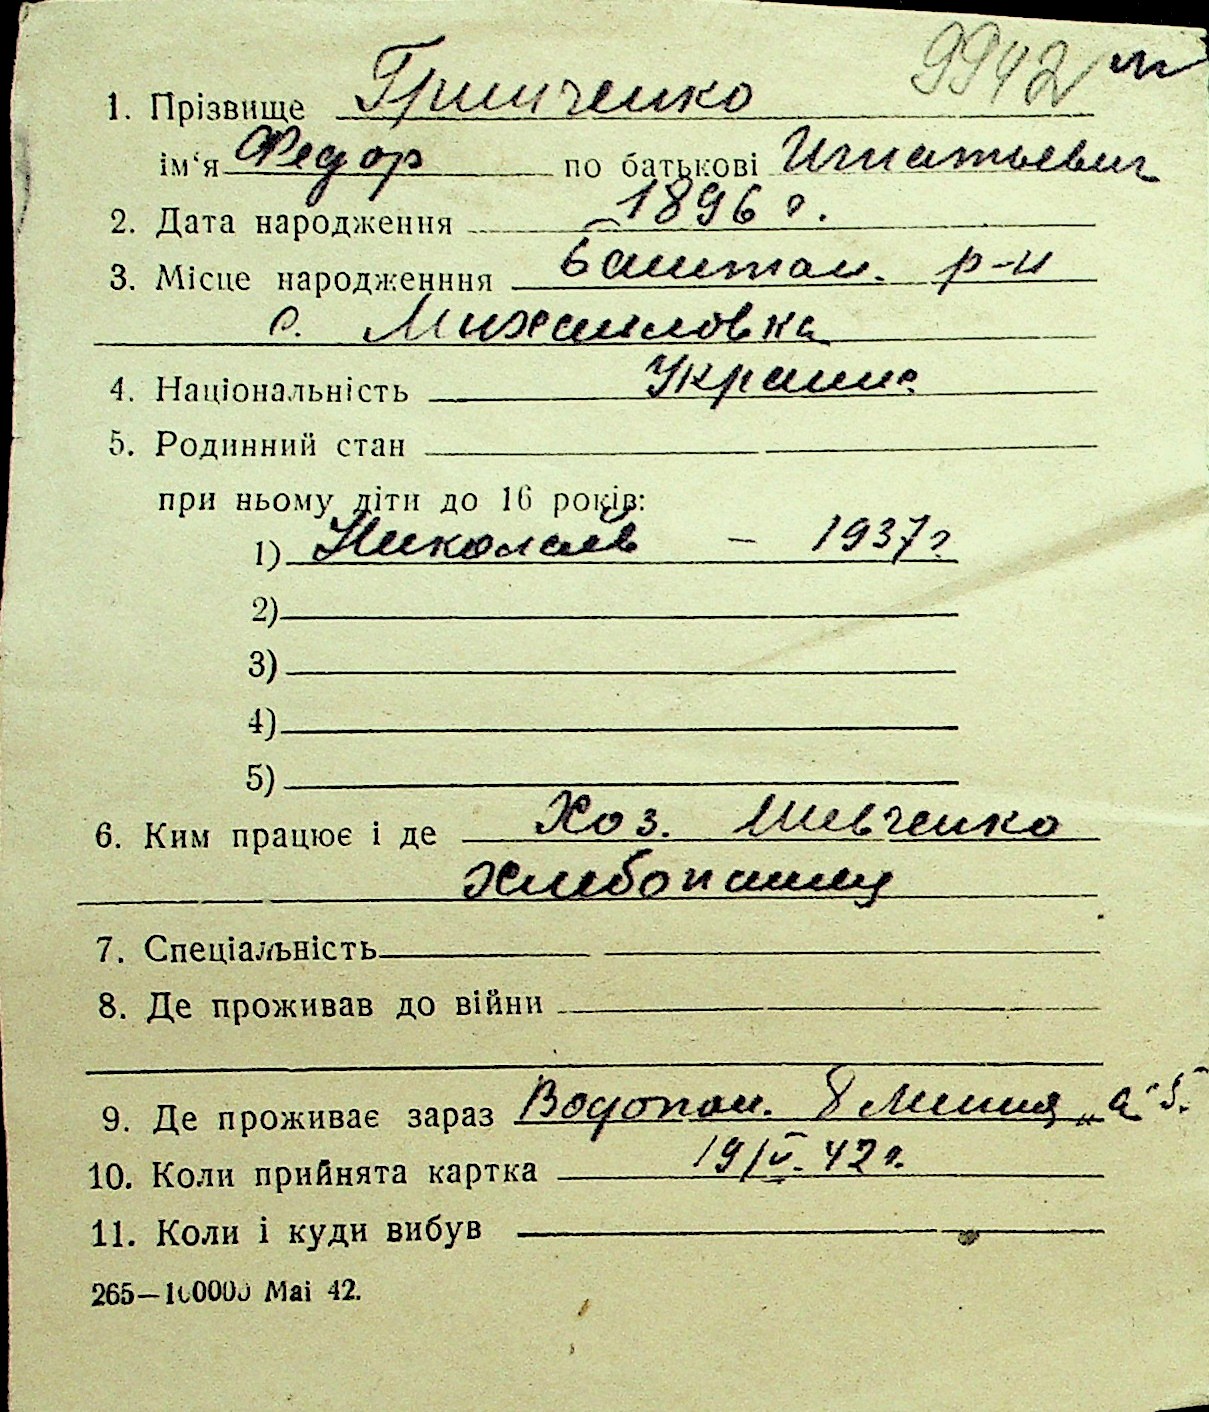 9942
1. Прізвище Гринченко
ім‘я Федор по батькові Игнатьевич
2. Дата народження 1896 г.
3. Місце народженння Баштан. р-н
с. Михайловка
4. Національність Украинец
5. Родинний стан
при ньому діти до 16 років:
1) Николай – 1937г
2)
3)
4)
5)
6. Ким працює і де Хоз. Шевченко
Хлебопашец
7. Спеціальність
8. Де проживав до війни
9. Де проживає зараз Водопой. 8 линия „а" 5.
10. Коли прийнята картка 19/V. 42г.
11. Коли і куди вибув
265—100000 Mai 42.